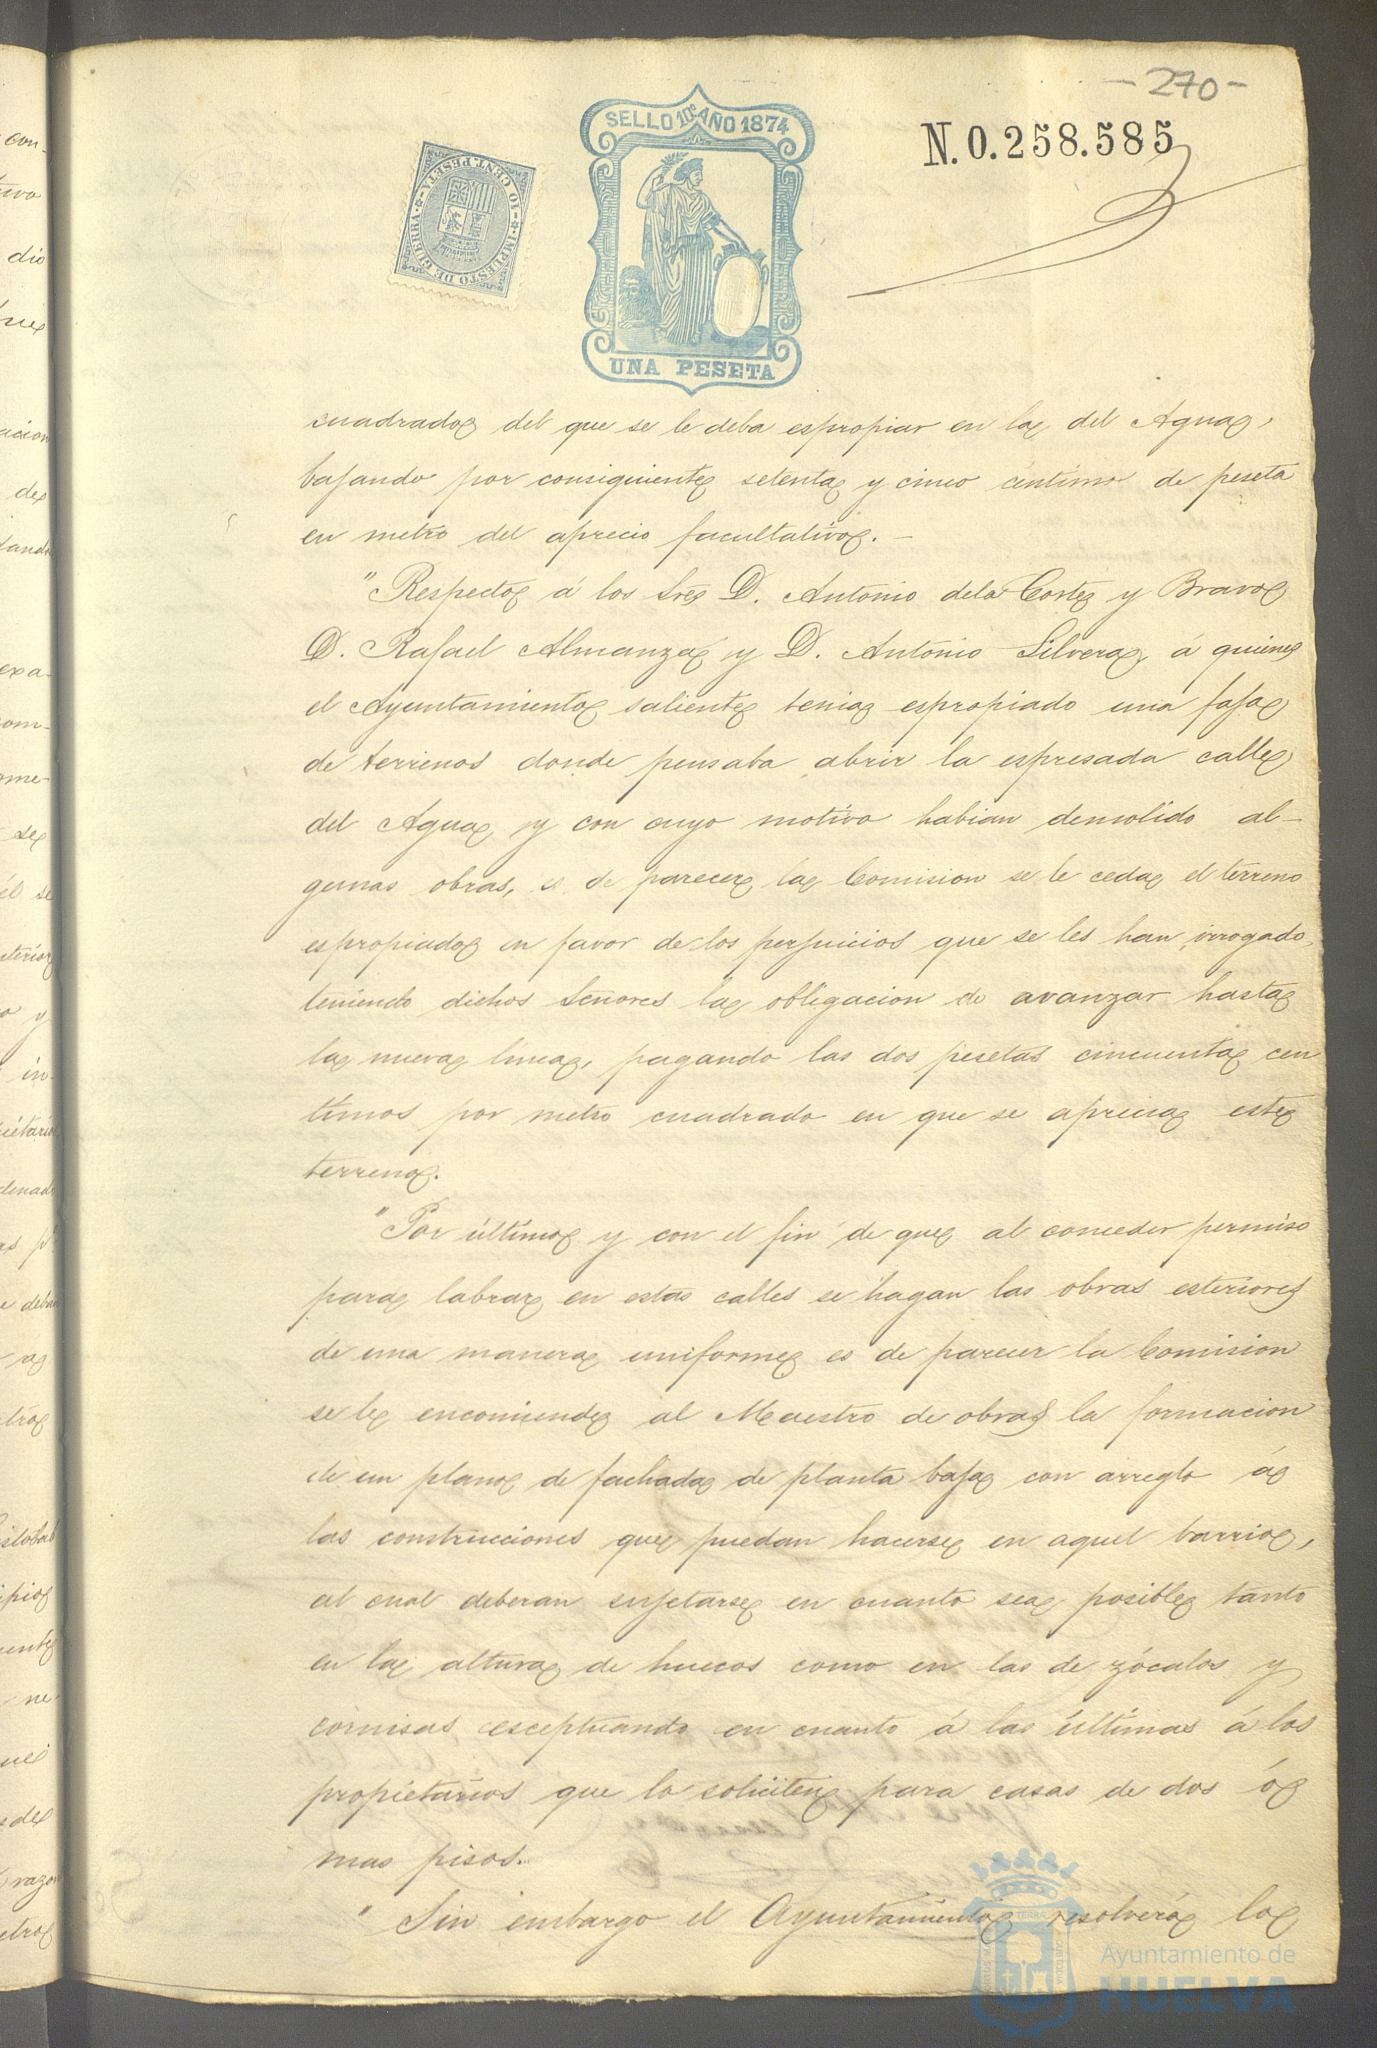 - 270 -
SELLO 10º AÑO 1874
N. 0.258.585
IMPUESTO DE GUERRA
10 CENT. PESETA
UNA PESETA
cuadrados del que se le deba espropiar en la del Agua,
bajando por consiguiente setenta y cinco céntimos de peseta
en metro del aprecio facultativo. —
"Respecto á los Sres D. Antonio dela Corte y Bravo
D. Rafael Almanza y D. Antonio Silvera, á quienes
el Ayuntamiento saliente tenia espropiado una faja
de terrenos donde pensaba abrir la espresada calle
del Agua, y con cuyo motivo habian demolido al-
gunas obras, es de parecer la Comision se le ceda el terreno
espropiado en favor de los perjuicios que se les han irrogado,
teniendo dichos Señores la obligacion de avanzar hasta
la nueva linea, pagando las dos pesetas cincuenta cen
timos por metro cuadrado en que se aprecia este
terreno.
"Por último y con el fin de que al conceder permiso
para labrar en estas calles se hagan las obras esteriores
de una manera uniforme es de parecer la Comision
se le encomiende al Maestro de obras la formacion
de un plano de fachada de planta baja con arreglo á
las construcciones que puedan hacerse en aquel barrio,
al cual deberan sujetarse en cuanto sea posible tanto
en la altura de huecos como en las de zócalos y
cornisas esceptuando en cuanto á las últimas á los
propietarios que lo soliciten para casas de dos ó
mas pisos.
" Sin embargo el Ayuntamiento resolverá lo
Ayuntamiento de
HUELVA